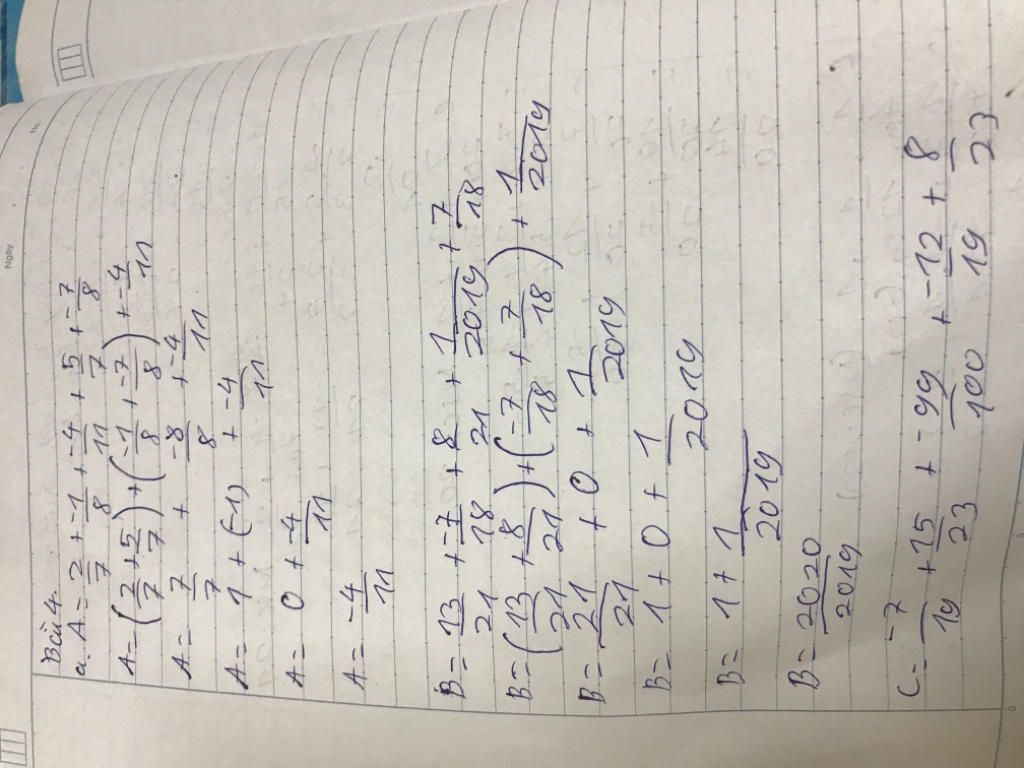 Ngày
No.
Bài 4.
a. A = 2/7 + -1/8 + -4/11 + 5/7 + -7/8
A = (2/7 + 5/7) + (-1/8 + -7/8) + -4/11
A = 7/7 + -8/8 + -4/11
A = 1 + (-1) + -4/11
A = 0 + -4/11
A = -4/11
B = 13/21 + -7/18 + 8/21 + 1/2019 + 7/18
B = (13/21 + 8/21) + (-7/18 + 7/18) + 1/2019
B = 21/21 + 0 + 1/2019
B = 1 + 0 + 1/2019
B = 1 + 1/2019
B = 2020/2019
C = -7/19 + 15/23 + -99/100 + -12/19 + 8/23